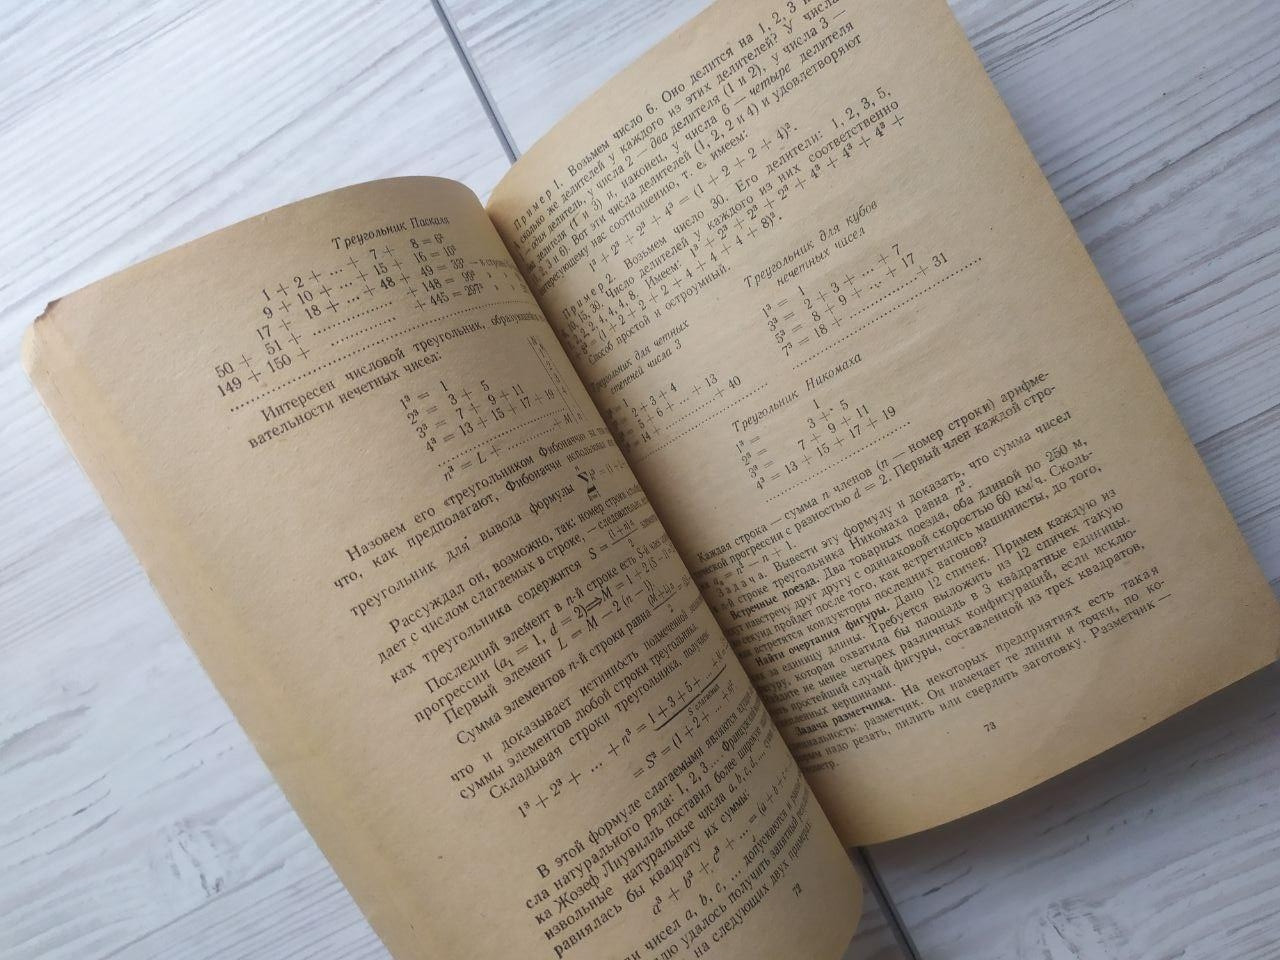 Треугольник Паскаля
1 + 2 + ... + 7 + 8 = 6²
9 + 10 + ... + 15 + 16 = 10²
17 + 18 + ... + 48 + 49 = 33²
50 + 51 + ... + 148 = 99²
149 + 150 + ... + 445 = 297²
Интересен числовой треугольник,
вательности нечетных чисел:
1³ = 1
2³ = 3 + 5
3³ = 7 + 9 + 11
4³ = 13 + 15 + 17 + 19
n³ = L + ... + M
Назовем его «треугольником Фибоначчи»
что, как предполагают, Фибоначчи использовал
треугольник для вывода формулы
Рассуждал он, возможно, так: номер строки
дает с числом слагаемых в строке, — следовательно,
ках треугольника содержится S =
Последний элемент в n-й строке есть S-й
прогрессии (a₁ = 1, d = 2) ⇒ M = 1 + 2 (S − 1)
Первый элемент L = M − 2 (n − 1)
Сумма элементов n-й строки равна
что и доказывает истинность подмеченной
суммы элементов любой строки треугольника.
Складывая строки треугольника, получаем
1³ + 2³ + ... + n³ = 1 + 3 + 5 + ...
S слагаемых
= S² = (1 + 2 + ... + n)².
В этой формуле слагаемыми являются
сла натурального ряда: 1, 2, 3 ... Французский
ка Жозеф Лиувилль поставил более широкую
извольные натуральные числа a, b, c, d ...,
равнялась бы квадрату их суммы:
a³ + b³ + c³ + ... = (a + b +
чисел a, b, c, ... допускаются и
удалось получить занятный
на следующих двух примерах
72
Пример 1. Возьмем число 6. Оно делится на 1, 2, 3 и
сколько же делителей у каждого из этих делителей? У числа
делитель, у числа 2 — два делителя (1 и 2), у числа 3 —
делителя (1 и 3) и, наконец, у числа 6 — четыре делителя
2, 3 и 6). Вот эти числа делителей (1, 2, 2 и 4) и удовлетворяют
интересующему нас соотношению, т. е. имеем:
1³ + 2³ + 2³ + 4³ = (1 + 2 + 2 + 4)².
Пример 2. Возьмем число 30. Его делители: 1, 2, 3, 5,
10, 15, 30. Число делителей у каждого из них соответственно
2, 2, 2, 4, 4, 4, 8. Имеем: 1³ + 2³ + 2³ + 2³ + 4³ + 4³ + 4³ +
8³ = (1 + 2 + 2 + 2 + 4 + 4 + 4 + 8)².
Способ простой и остроумный.
Треугольник для четных
степеней числа 3
= 1
= 2 + 3 + 4
= 5 + 6 + ... + 13
= 14 + ... + 40
Треугольник для кубов
нечетных чисел
1³ = 1
3³ = 2 + 3 + ... + 7
5³ = 8 + 9 + ... + 17
7³ = 18 + ... + 31
Треугольник Никомаха
1³ = 1
2³ = 3 + 5
3³ = 7 + 9 + 11
4³ = 13 + 15 + 17 + 19
Каждая строка — сумма n членов (n — номер строки) арифме-
тической прогрессии с разностью d = 2. Первый член каждой стро-
ки aₙ = n² − n + 1.
Задача. Вывести эту формулу и доказать, что сумма чисел
n-й строке треугольника Никомаха равна n³.
Встречные поезда. Два товарных поезда, оба длиной по 250 м,
навстречу друг другу с одинаковой скоростью 60 км/ч. Сколь-
секунд пройдет после того, как встретились машинисты, до того,
встретятся кондукторы последних вагонов?
Найти очертания фигуры. Дано 12 спичек. Примем каждую из
за единицу длины. Требуется выложить из 12 спичек такую
фигуру, которая охватила бы площадь в 3 квадратные единицы.
Найдите не менее четырех различных конфигураций, если исклю-
простейший случай фигуры, составленной из трех квадратов,
вершинами.
Задача разметчика. На некоторых предприятиях есть такая
специальность: разметчик. Он намечает те линии и точки, по ко-
торым надо резать, пилить или сверлить заготовку. Разметчик —
73